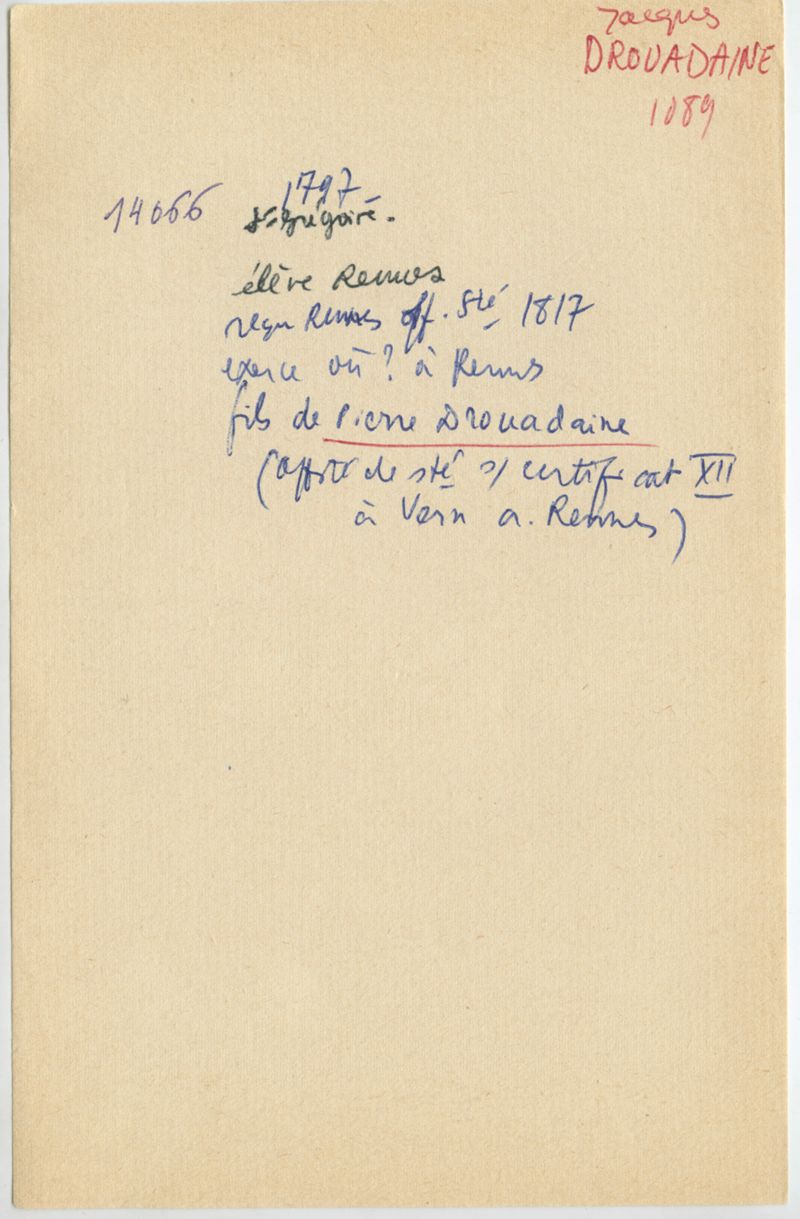 Jacques
DROUADAINE
1089
14066
1797
St Grégoire.
élève Rennes
reçu Rennes off. Sté 1817
exerce où ? à Rennes
fils de Pierre Drouadaine
(offic de sté s/ certificat XII
à Vern a. Rennes)